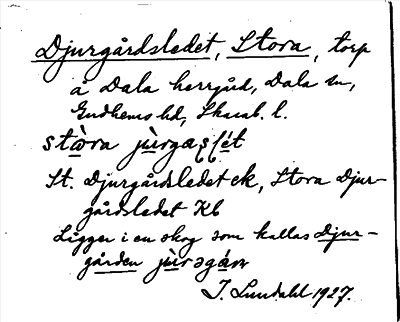 Djurgårdsledet, Stora, torp
å Dala herrgård, Dala sn,
Gudhems hd, Skarab. l.
stòra jùrgasLét
St. Djurgårdsledet ek, Stora Djur-
gårdsledet Kb
Ligger i en skog som kallas Djur-
gården jùrəgán
J. Lundahl 1927.